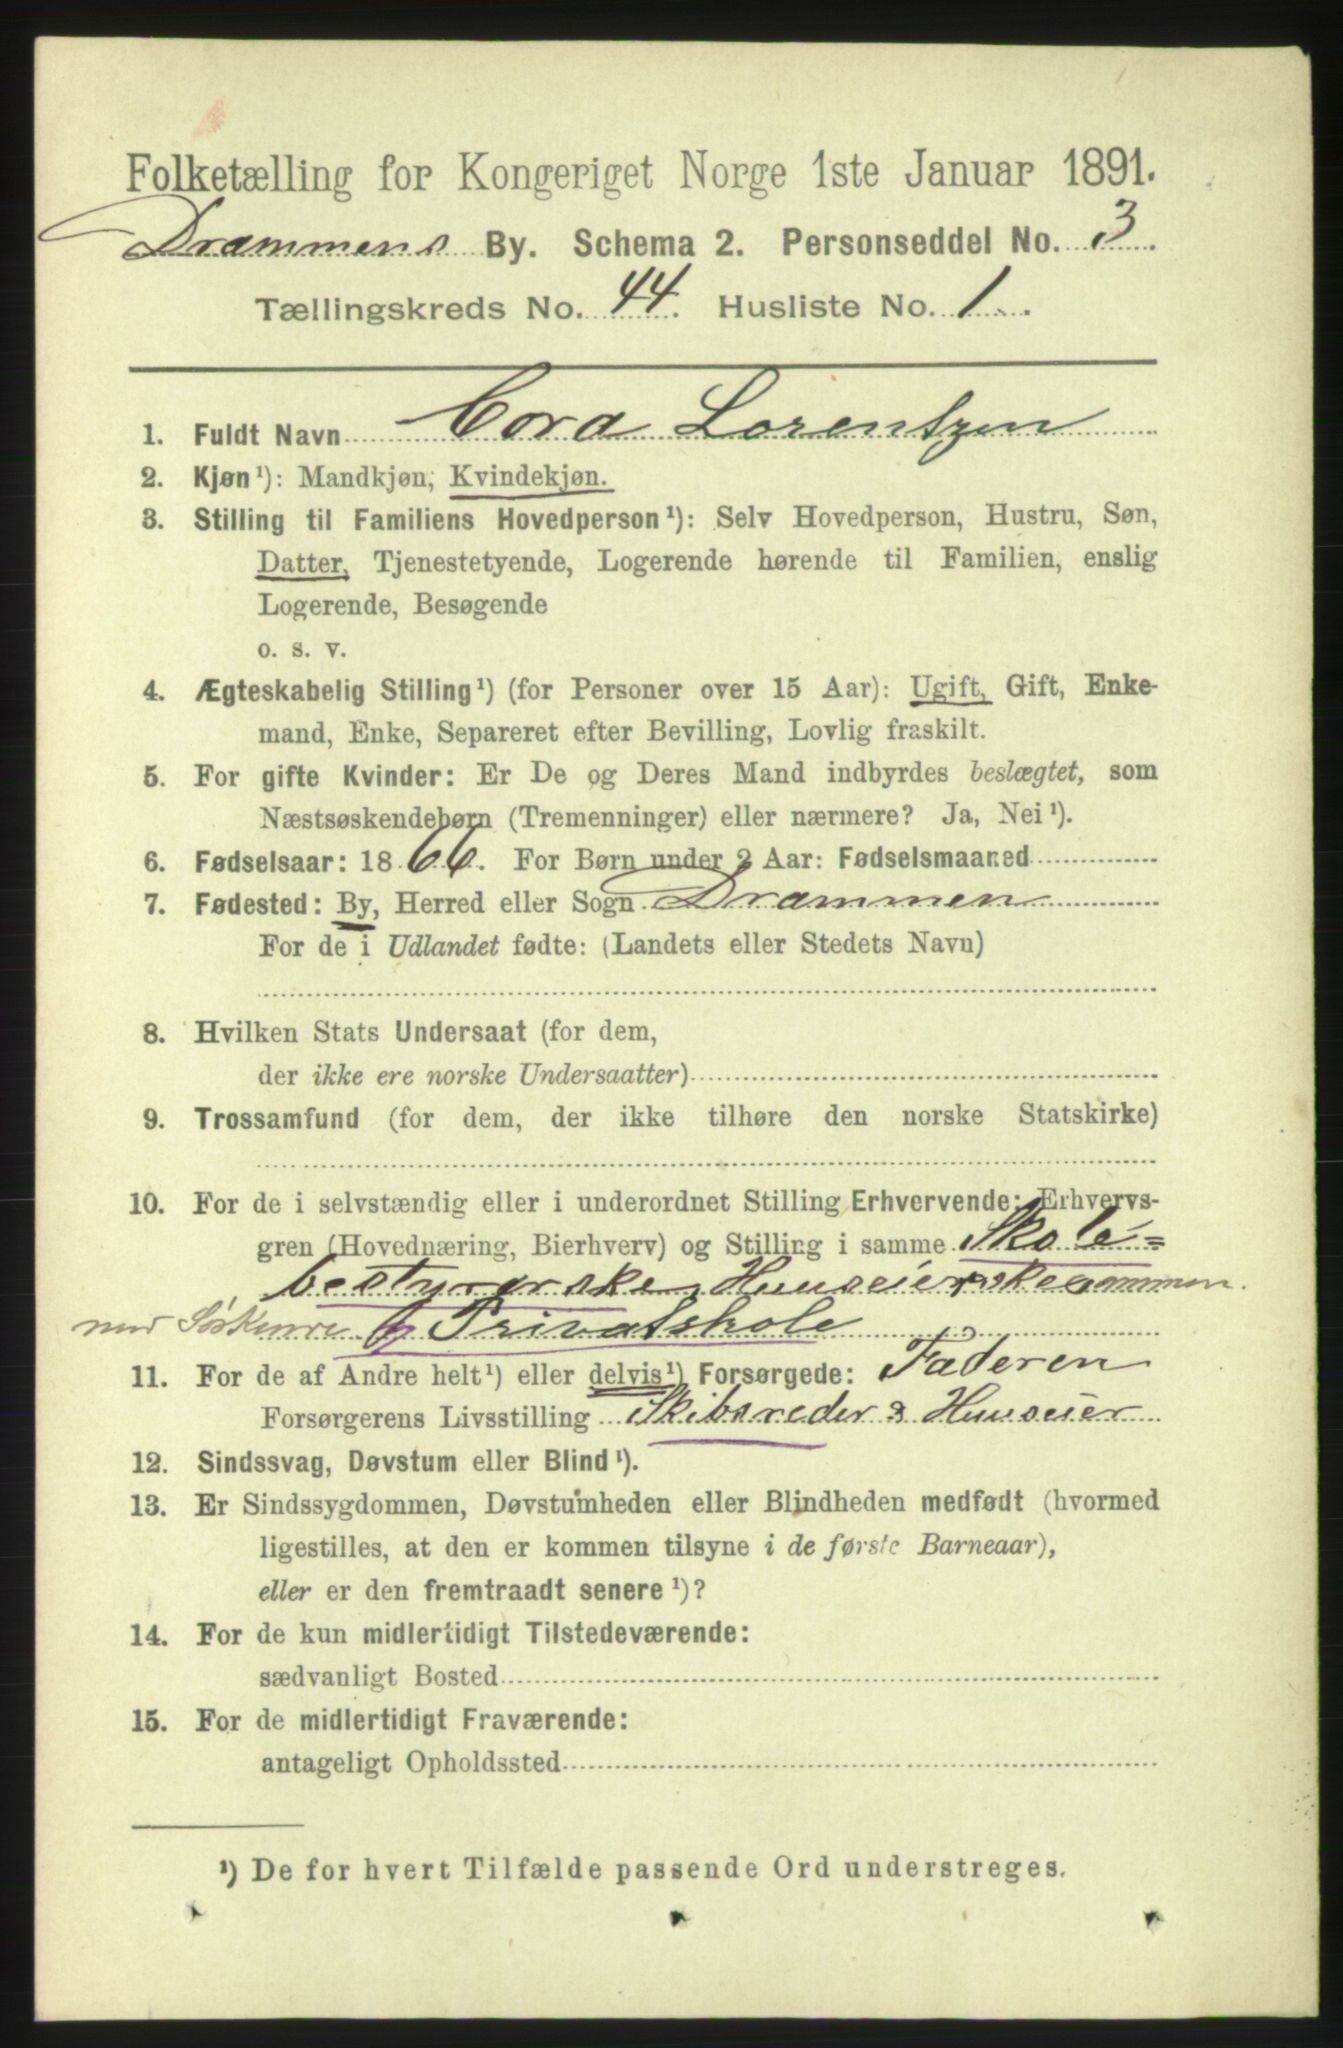 Folketælling for Kongeriget Norge 1ste Januar 1891.
Drammens By. Schema 2. Personseddel No. 3.
Tællingskreds No. 44. Husliste No. 1.
1. Fuldt Navn Cora Lorentzen
2. Kjøn¹): Mandkjøn, Kvindekjøn.
3. Stilling til Familiens Hovedperson¹): Selv Hovedperson, Hustru, Søn,
Datter, Tjenestetyende, Logerende hørende til Familien, enslig
Logerende, Besøgende
o. s. v.
4. Ægteskabelig Stilling¹) (for Personer over 15 Aar): Ugift, Gift, Enke-
mand, Enke, Separeret efter Bevilling, Lovlig fraskilt.
5. For gifte Kvinder: Er De og Deres Mand indbyrdes beslægtet, som
Næstsøskendebørn (Tremenninger) eller nærmere? Ja, Nei¹).
6. Fødselsaar: 1866. For Børn under 2 Aar: Fødselsmaaned
7. Fødested: By, Herred eller Sogn Drammen
For de i Udlandet fødte: (Landets eller Stedets Navn)
8. Hvilken Stats Undersaat (for dem,
der ikke ere norske Undersaatter)
9. Trossamfund (for dem, der ikke tilhøre den norske Statskirke)
10. For de i selvstændig eller i underordnet Stilling Erhvervende: Erhvervs-
gren (Hovednæring, Bierhverv) og Stilling i samme Skole=
bestyrerske, Huuseierske sammen
med Søskende Privatskole
11. For de af Andre helt¹) eller delvis¹) Forsørgede: Faderen
Forsørgerens Livsstilling Skibsreder & Huuseier
12. Sindssvag, Døvstum eller Blind¹).
13. Er Sindssygdommen, Døvstumheden eller Blindheden medfødt (hvormed
ligestilles, at den er kommen tilsyne i de første Barneaar),
eller er den fremtraadt senere¹)?
14. For de kun midlertidigt Tilstedeværende:
sædvanligt Bosted
15. For de midlertidigt Fraværende:
antageligt Opholdssted
¹) De for hvert Tilfælde passende Ord understreges.